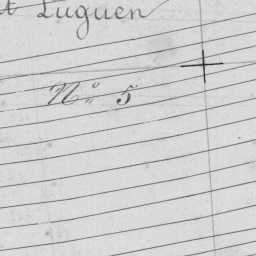 t Luguen
N° 5